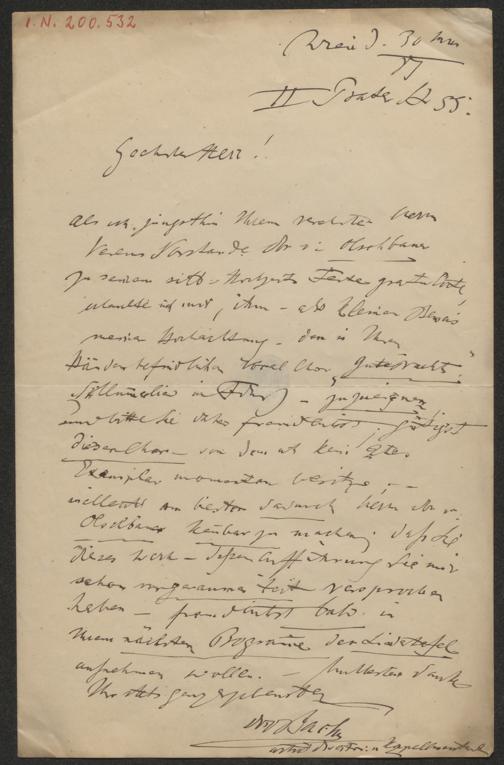 I.N. 200.532
Wien d. 30
II Prater
55.
Geehrter Herr!
als ich jüngsthin Ihrem verehrten Herrn
Vereins Vorstande Dr v. Olschbaur
zu seinem silb. Hochzeits Feste gratulirte,
erlaubte ich mir, ihm – als kleinen Beweis
meiner Hochachtung – den in Ihren
Händen befindlichen Vocal Chor "Gute Nacht"
in – zuzueignen
und bitte Sie daher freundlichst, gütigst
diesen Chor – von dem ich kein 2tes
Exemplar momentan besitze, –
vielleicht am besten dadurch Herrn Dr v.
Olschbaur zu machen, daß Sie
dieses Werk – dessen Aufführung Sie mir
schon vor geraumer Zeit versprochen
haben – freundlichst bald in
Ihrem nächsten Programme der Liedertafel
aufnehmen wollen. – Dank
Ihr stets ganz ergebenster